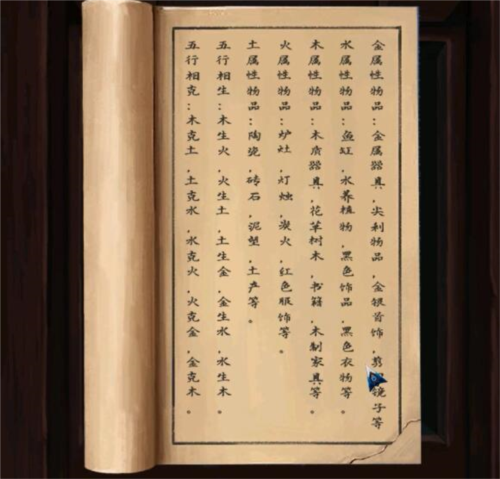 金属性物品:金属器具,尖利物品,金银首饰,剪 镜子等
水属性物品:鱼缸,水养植物,黑色饰品,黑色衣物等
木属性物品:木质器具,花草树木,书籍,木制家具等。
火属性物品:炉灶,灯烛,炭火,红色服饰等。
土属性物品:陶瓷,砖石,泥塑,土产等。
五行相生:木生火,火生土,土生金,金生水,水生木。
五行相克:木克土,土克水,水克火,火克金,金克木。